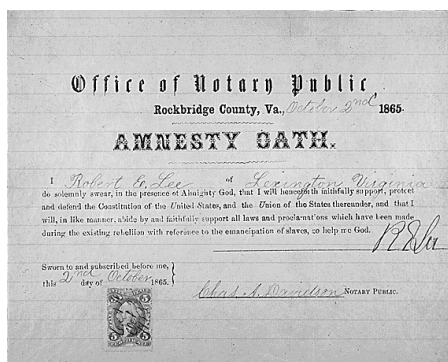 Office of Notary Public
Rockbridge County, Va., October 2nd 1865.
AMNESTY OATH.
I Robert E. Lee of Lexington Virginia
do solemnly swear, in the presence of Almighty God, that I will henceforth faithfully support, protect
and defend the Constitution of the United States, and the Union of the States thereunder, and that I
will, in like manner, abide by and faithfully support all laws and proclamations which have been made
during the existing rebellion with reference to the emancipation of slaves, so help me God.
R E Lee
Sworn to and subscribed before me,
this 2nd day of October 1865.
Chas. A. Davidson NOTARY PUBLIC.
5 5
5 5